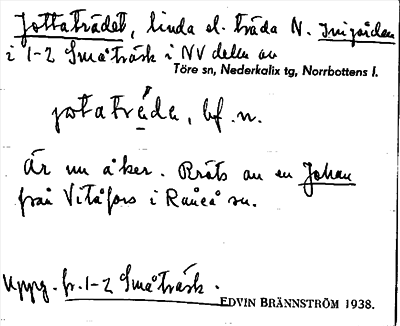 Jottaträdet, linda el. träda N. Inigården
i 1-2 Småträsk i NV delen av
Töre sn, Nederkalix tg, Norrbottens l.
jotaträda, bf. n.
Är nu åker. Bröts av en Johan
från Vitåfors i Råneå sn.
Uppg. fr. 1-2 Småträsk.
EDVIN BRÄNNSTRÖM 1938.